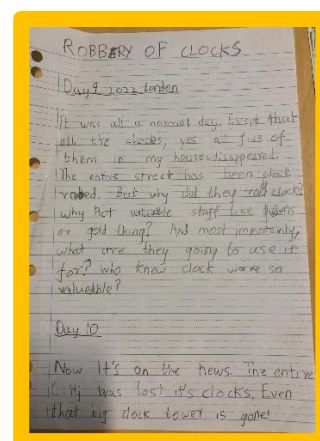 ROBBERY OF CLOCKS
Day 9 2022 London
It was all a normal day. Except that
all the clocks, yes all five of
them in my house disappeared.
The entire street has been clock
robed. But why did they rob clocks?
why not valuable stuff like
or gold thing? And most importantly,
what are they going to use it
for? who knew clock were so
valueable?
Day 10
Now It's on the news. The entire
city was lost it's clocks, Even
that big clock tower is gone!